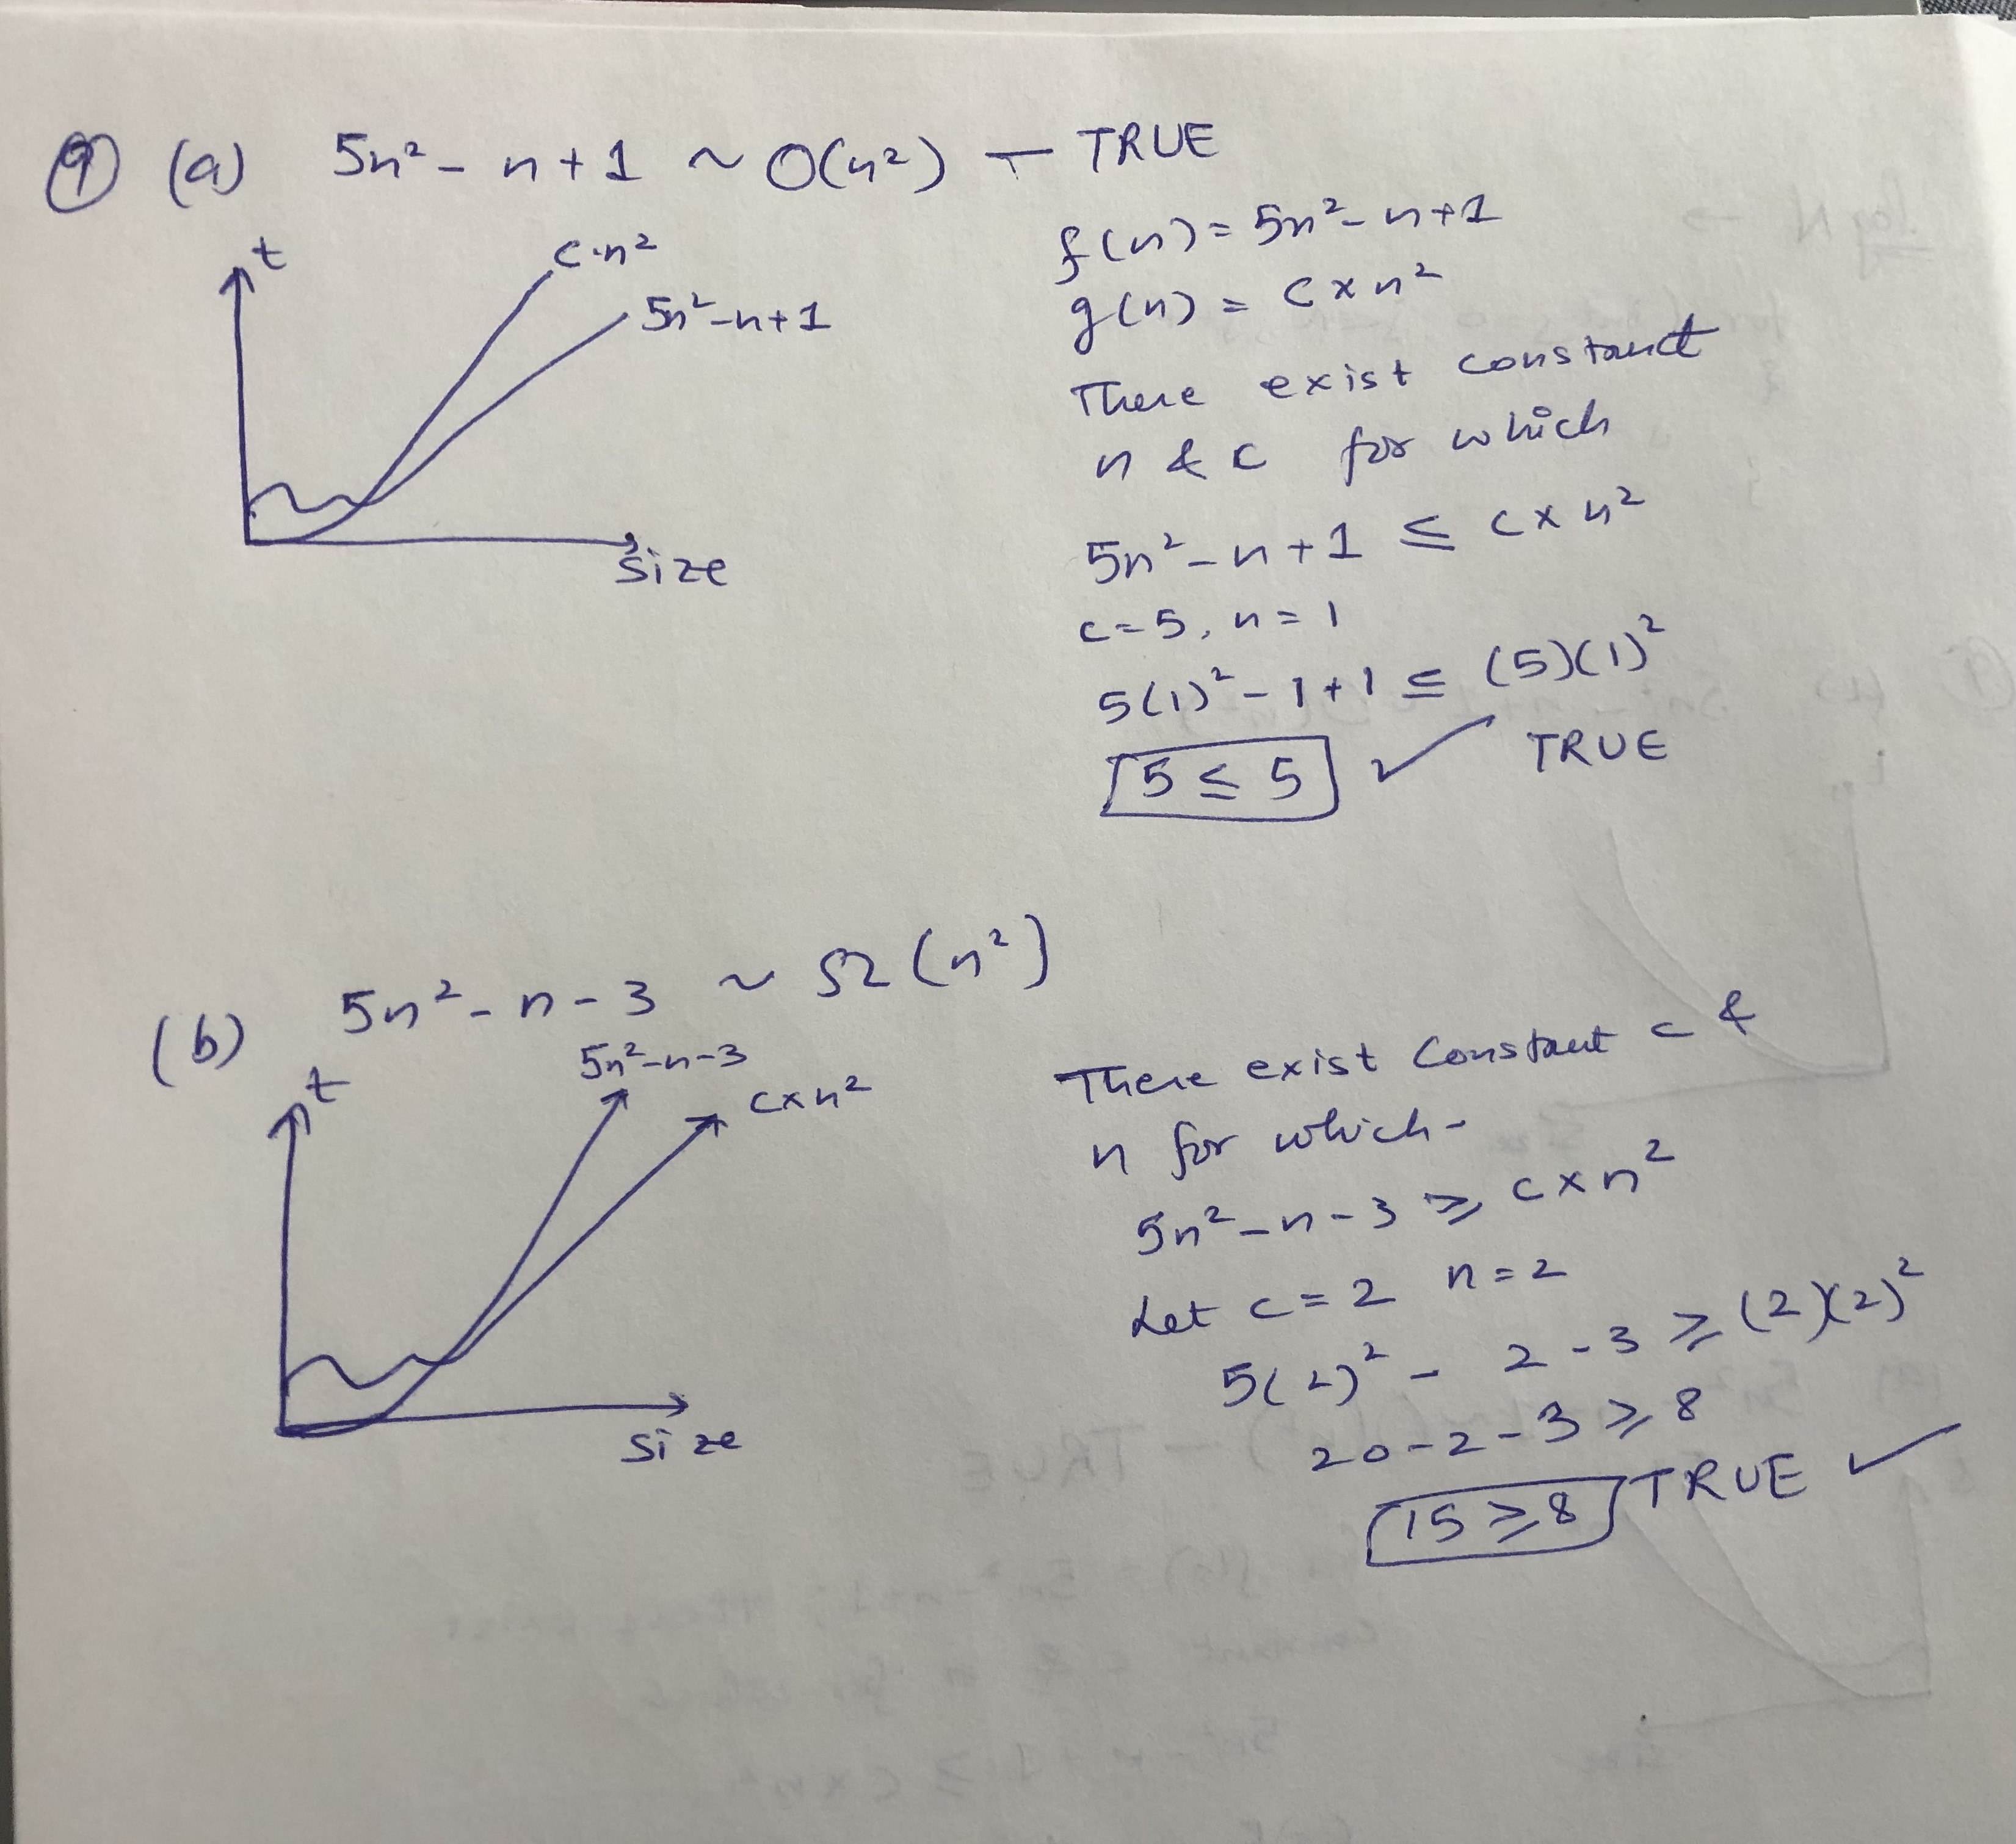 9 (a) 5n² - n + 1 ~ O(n²) — TRUE
t
c·n²
5n²-n+1
size
f(n) = 5n² - n + 1
g(n) = c × n²
There exist constant
n & c for which
5n² - n + 1 ≤ c × n²
c = 5, n = 1
5(1)² - 1 + 1 ≤ (5)(1)²
5 ≤ 5 ✓ TRUE
(b) 5n² - n - 3 ~ Ω(n²)
t
5n²-n-3
c×n²
size
There exist constant c &
n for which -
5n² - n - 3 ≥ c × n²
Let c = 2 n = 2
5(2)² - 2 - 3 ≥ (2)(2)²
20 - 2 - 3 ≥ 8
15 ≥ 8 TRUE ✓